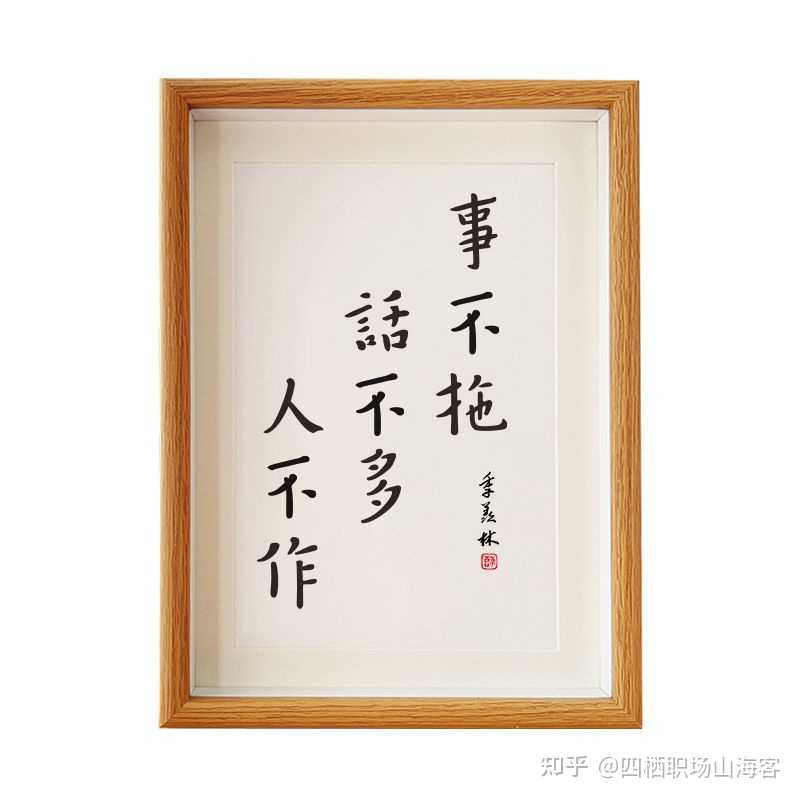 事不拖
話不多
人不作
季羨林
知乎 @四栖职场山海客